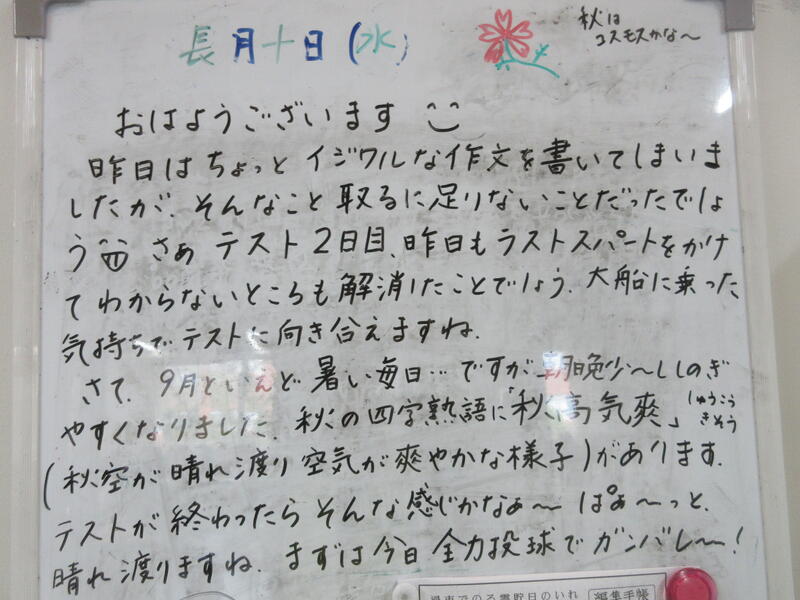 長月十日(水)
秋は
コスモスかな～
おはようございます
昨日はちょっとイジワルな作文を書いてしまいま
したが、そんなこと取るに足りないことだったでしょ
う さぁ テスト2日目、昨日もラストスパートをかけ
てわからないところも解消したことでしょう。大船に乗った
気持ちでテストに向き合えますね。
さて、9月といえど暑い毎日…ですが朝晩少～ししのぎ
やすくなりました。秋の四字熟語に「秋高気爽」しゅうこう
きそう
(秋空が晴れ渡り空気が爽やかな様子)があります。
テストが終わったらそんな感じかなぁ～ ぱぁ～っと、
晴れ渡りますね。まずは今日全力投球でガンバレ～!
編集手帳